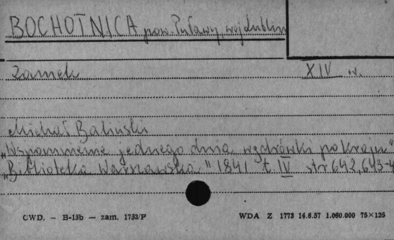 BOCHOTNICA pow. Puławy, woj. Lublin
Zamek XIV w.
Michał Baliński
"Wspomnienie jednego dnia wędrówki po kraju"
"Biblioteka Warszawska" 1841 t IV str 642, 643-4
CWD. — B-15b — zam. 1752/P WDA Z 1773 14.6.57 1.060.000 75×125